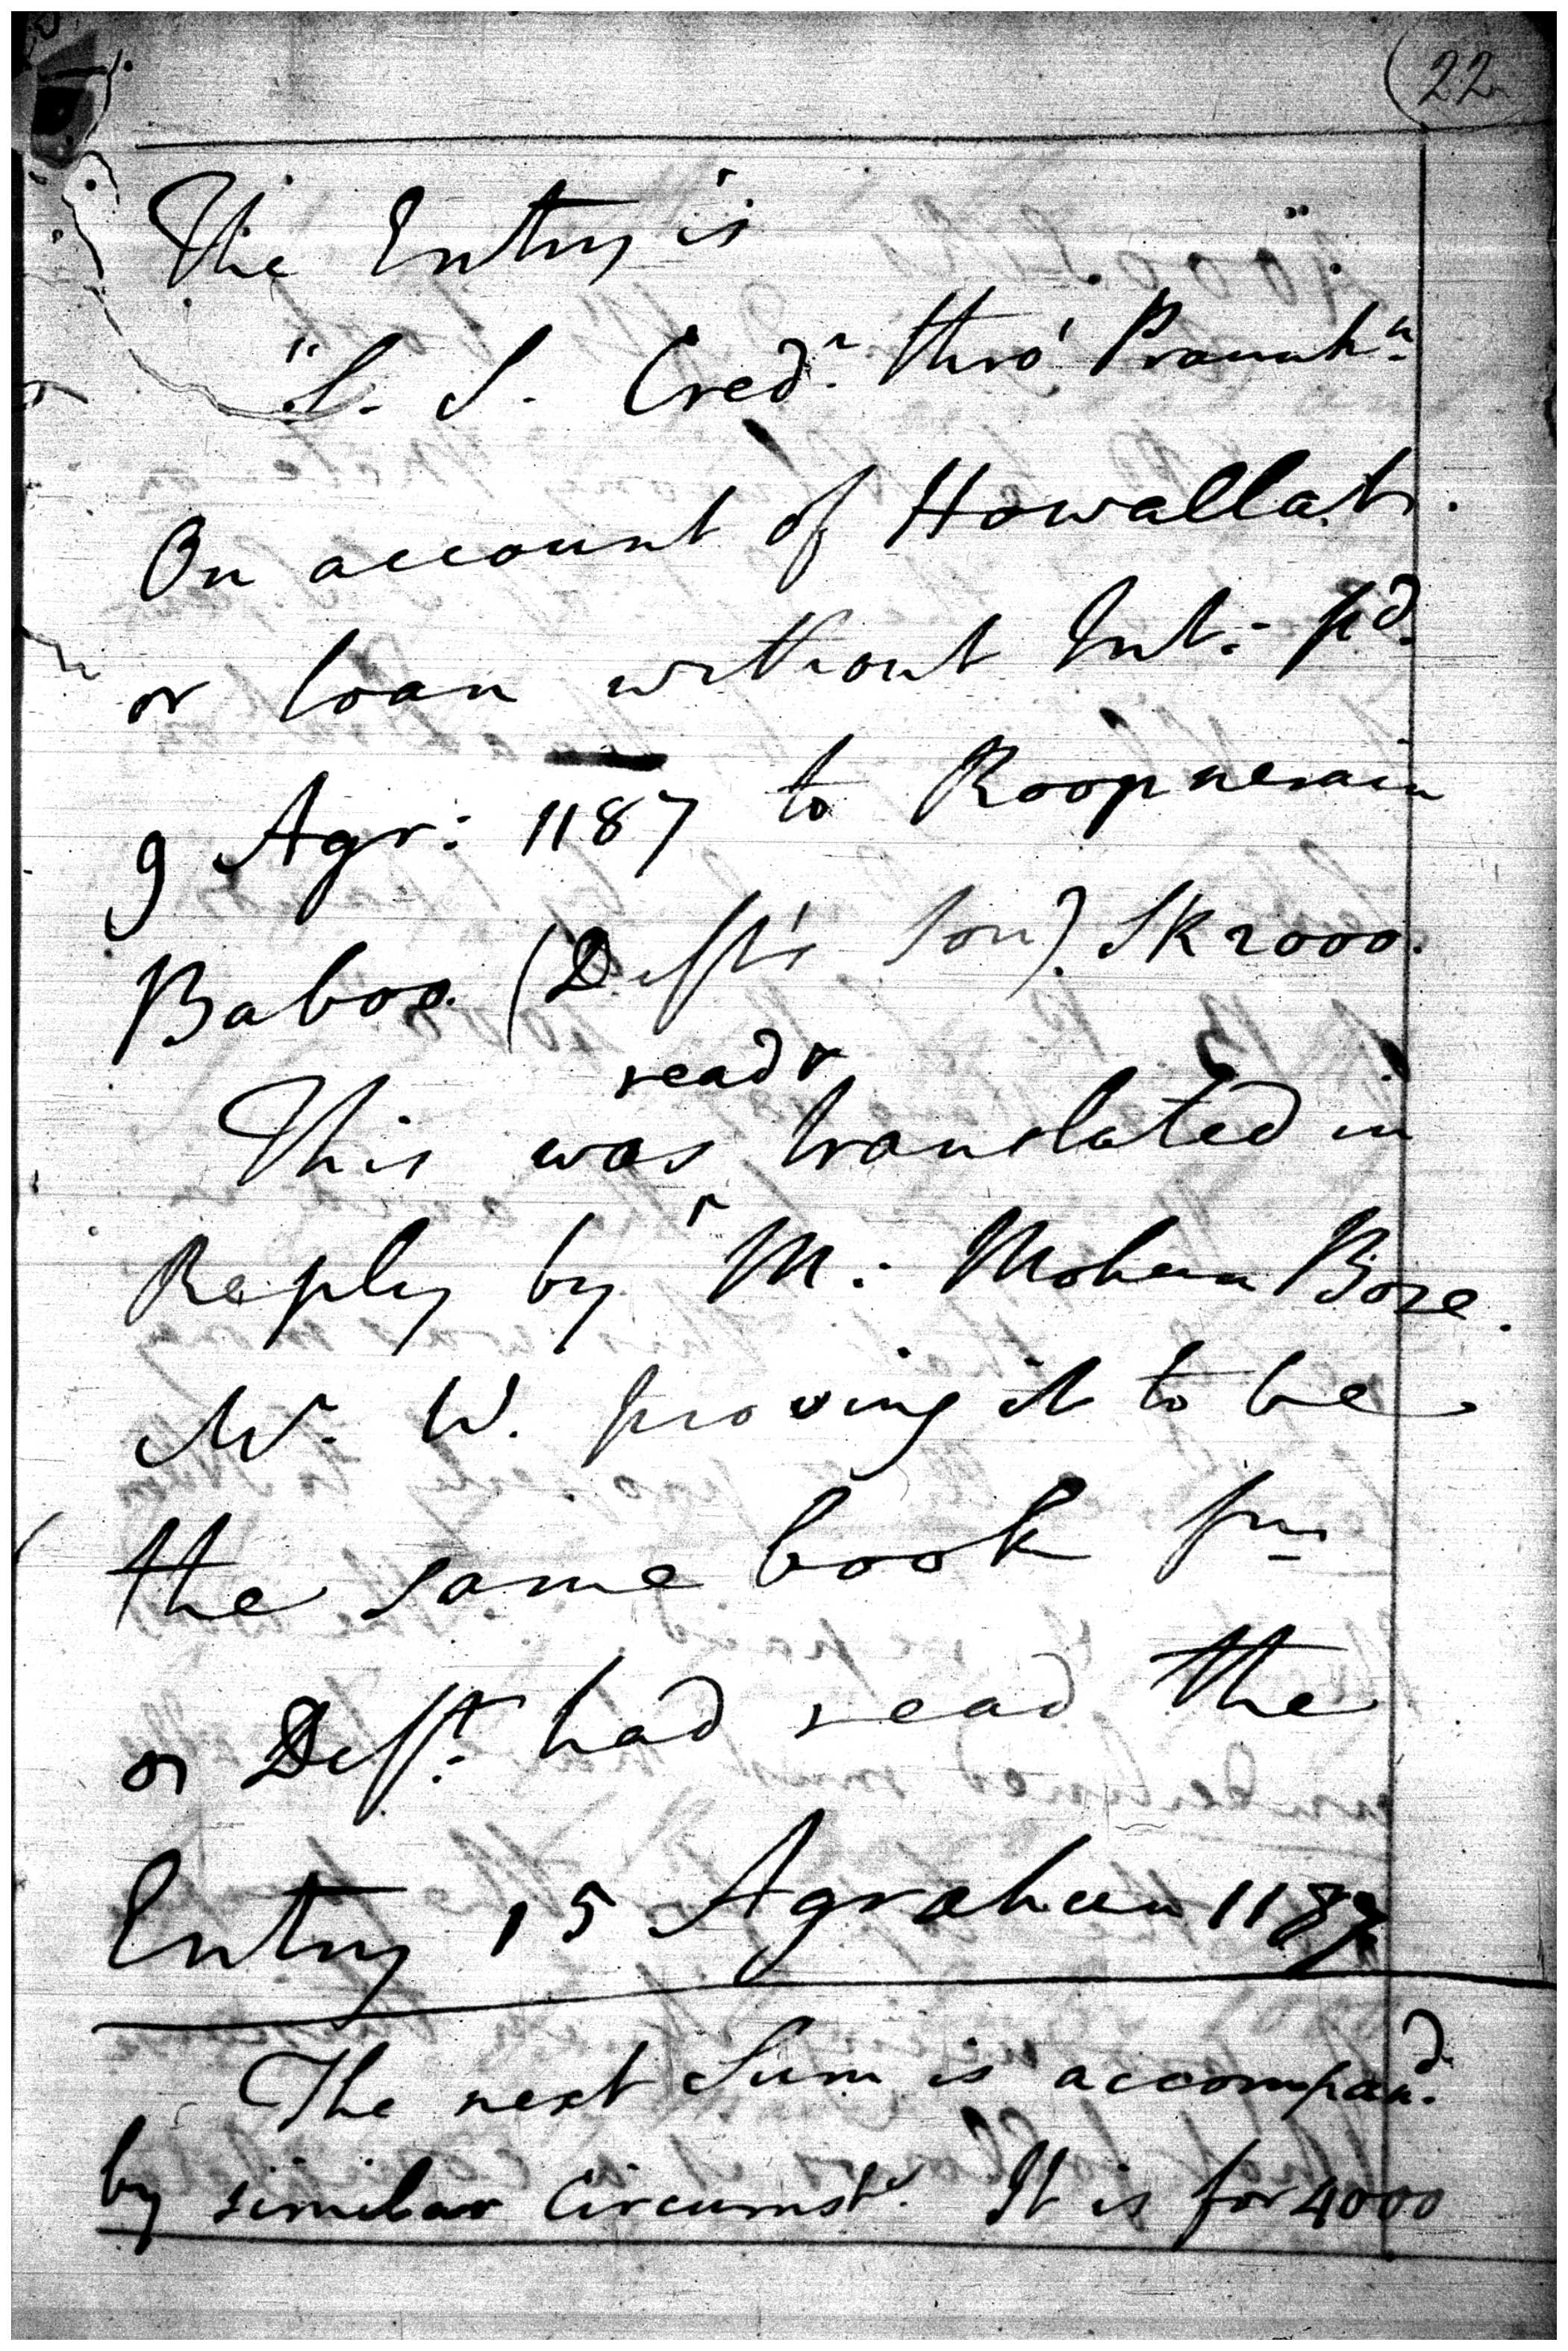 22
The Entry is
"S. S. Cred.r thro' Pranah.n
On account of Howallat.
or loan without Int: pd.
9 Agr: 1187 to Roopnerain
Baboo. (Deft's son) SR 2000.
read &
This was translated in
Reply by M: Mohun Bose.
Mr. W. proving it to be
the same book fm
or Deft. had read the
Entry 15 Agrahun 1187
The next Sum is accompand.
by similar Circumsts. It is for 4000